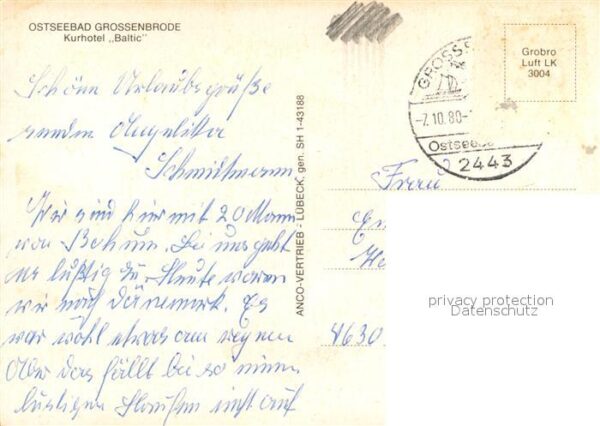 OSTSEEBAD GROSSENBRODE
Kurhotel „Baltic"
Schöne Urlaubsgrüße
senden Angelika
Schmidtmann
Wir sind hier mit 20 Mann
von Bochum. Bei uns geht
es lustig zu. Heute waren
wir nach Dänemark. Es
war wohl etwas am regnen
Aber das fällt bei so einem
lustigen Haufen nicht auf
ANCO-VERTRIEB - LÜBECK, gen. SH 1-43188
GROSS
-7.10.80-
Ostseebad
2443
Grobro
Luft LK
3004
Frau
4630
privacy protection
Datenschutz